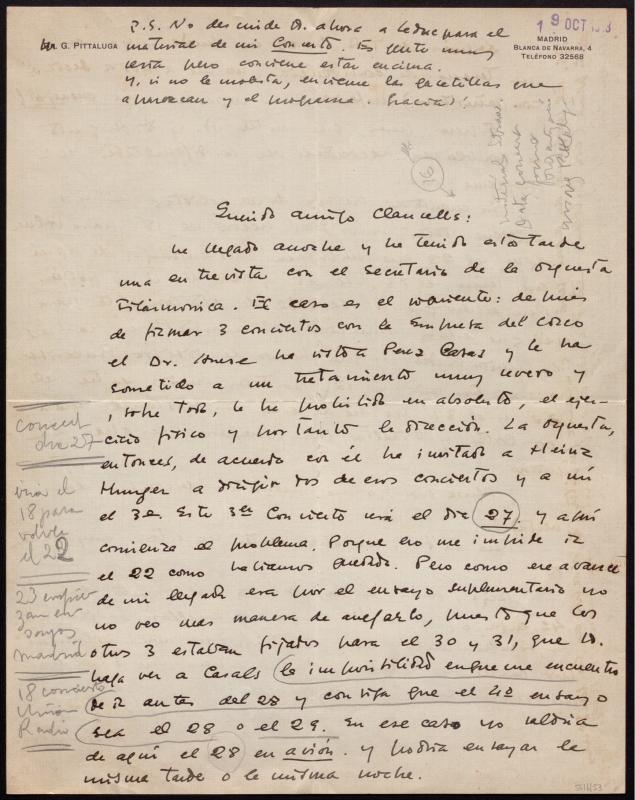 P.S. No descuide V. ahora a Leduc para el
material de mi Concierto. Es gente muy
seria pero conviene estar encima.
y, si no le molesta, envíeme las gacetillas que
aparezcan y el programa. Gracias!
Dr. G. PITTALUGA
19 OCT
MADRID
BLANCA DE NAVARRA, 4
TELÉFONO 32568
material
Data concert
16
Querido amigo Clausells:
he llegado anoche y he tenido esta tarde
una entrevista con el Secretario de la Orquesta
Filarmonica. El caso es el siguiente: despues
de firmar 3 conciertos con la Empresa del Coseo
el Dr. ha visto a Perez Casas y le ha
sometido a un tratamiento muy severo y
, sobre todo, le ha prohibido en absoluto, el ejer-
cicio fisico y por tanto la dirección. La orquesta,
entonces, de acuerdo con él ha invitado a Heinz
Hunger a dirigir dos de esos conciertos y a mi
el 3º. Este 3er Concierto será el dia 27. y aqui
comienza el problema. Porque no me impide ir
el 22 como habiamos quedido. Pero como el avance
de mi llegada era por el ensayo suplementario no
no veo mas manera de arreglarlo, puesto que los
otros 3 estaban fijados para el 30 y 31, que V.
haga ver a Casals la imposibilidad en que me encuentro
de ir antes del 28 y consiga que el 4º ensayo
sea el 28 o el 29. En ese caso yo saldria
de aqui el 28 en avión. y podria ensayar la
misma tarde o la misma noche.
concert
dia 27
el
18 para
volver
el 22
23
zan en-
sayos
madrid
18 concierto
Unión
Radio